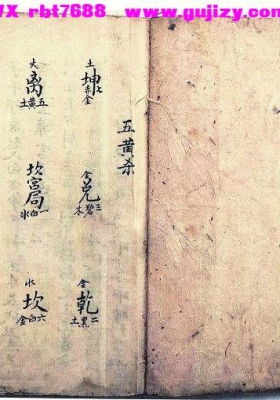 WX_rbt7688 www.gujizy.com
五黄杀
土 坤 七赤金
金 兑 三碧木
金 乾 二黑土
火 离 五黄土
坎宫局 一白水
水 坎 六白金